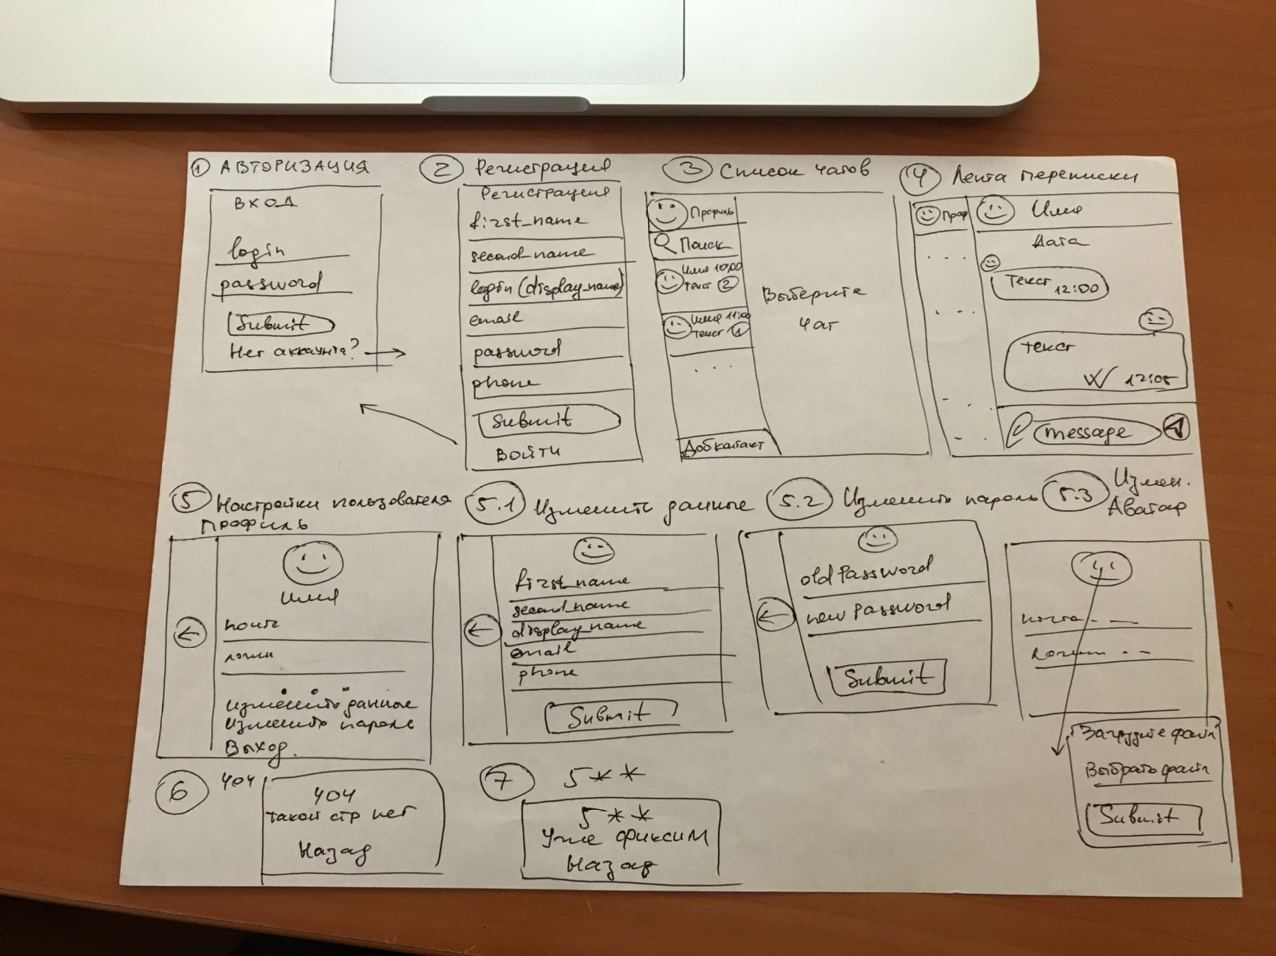 1 АВТОРИЗАЦИЯ
ВХОД
login
password
Submit
Нет аккаунта?
2 Регистрация
Регистрация
first_name
second_name
login (display_name)
email
password
phone
Submit
Войти
3 Список чатов
Профиль
Поиск
Имя 10:00
текст 2
Имя 11:00
текст
...
Доб контакт
Выберите
чат
4 Лента переписки
Проф
Имя
Дата
Текст
12:00
текст
12:05
message
5 Настройки пользователя
Профиль
имя
почта
логин
изменить данные
изменить пароль
Выход.
5.1 Изменить данные
first_name
second_name
display_name
email
phone
Submit
5.2 Изменить пароль
old Password
new Password
Submit
5.3 Измен.
Аватар
почта - —
логин - -
Загрузите файл
Выбрать файл
Submit
6 404
404
Такой стр нет
Назад
7 5**
5**
Уже фиксим
Назад